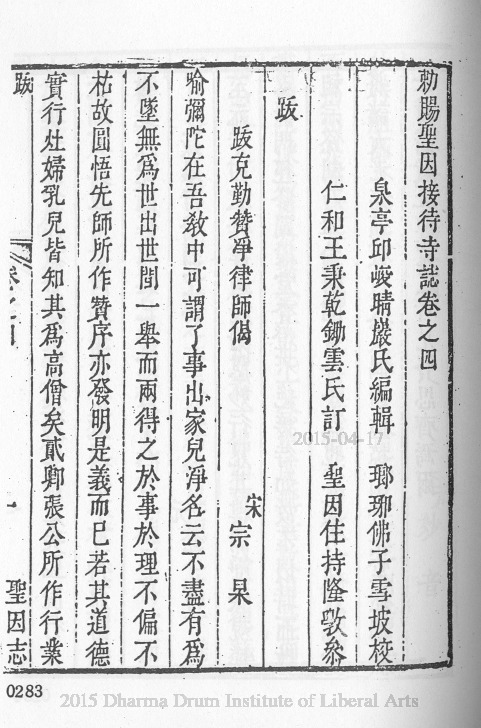 勅賜聖因接待寺誌卷之四
泉亭邱峻晴巖氏編輯 瑯琊佛子雪坡校
仁和王秉乾鋤雲氏訂 聖因住持隆敩叅
跋
跋克勤贊淨律師偈
宋 宗杲
喻彌陀在吾敎中可謂了事出家兒淨名云不盡有爲
不墜無爲世出世間一舉而兩得之於事於理不偏不
枯故圓悟先師所作贊序亦發明是義而已若其道德
實行灶婦乳兒皆知其爲高僧矣貳卿張公所作行業
跋
卷之四
一
聖因志
0283
2015-04-17
2015 Dharma Drum Institute of Liberal Arts